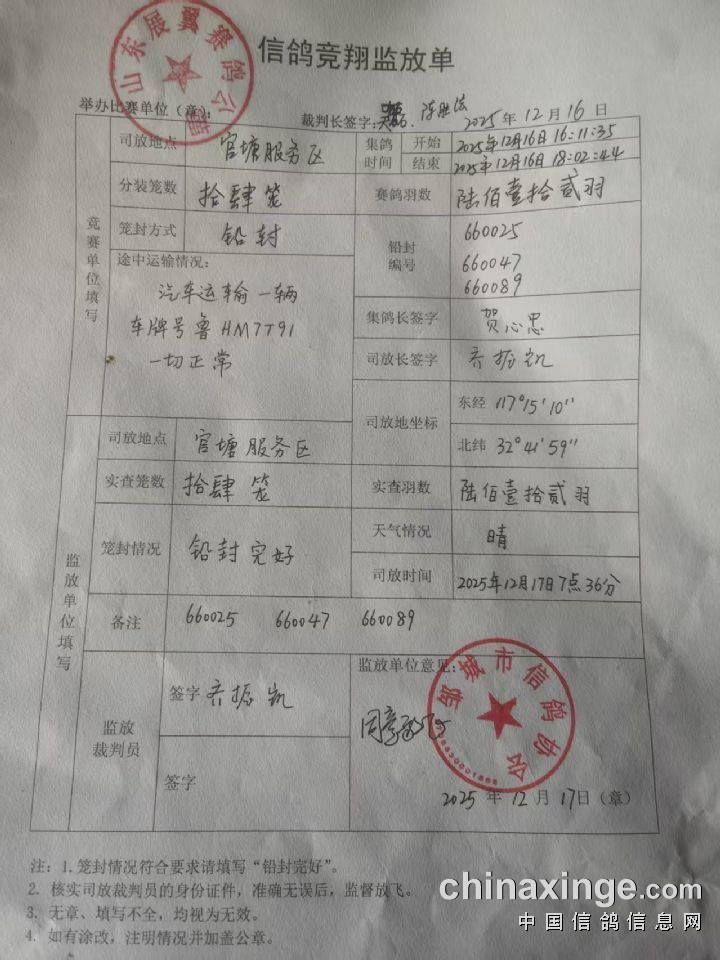 信鸽竞翔监放单
山东展翼赛鸽公棚
举办比赛单位（章）：
裁判长签字：
2025年12月16日
竞赛单位填写
司放地点 官塘服务区
集鸽时间 开始 2025年12月16日 16:11:35
结束 2025年12月16日 18:02:44
分装笼数 拾肆笼
赛鸽羽数 陆佰壹拾贰羽
笼封方式 铅封
铅封编号 660025
660047
660089
途中运输情况：
汽车运输一辆
车牌号鲁HM7T91
一切正常
集鸽长签字 贺心忠
司放长签字 齐振凯
司放地坐标 东经 117°15′10″
北纬 32°41′59″
监放单位填写
司放地点 官塘服务区
实查笼数 拾肆笼
实查羽数 陆佰壹拾贰羽
笼封情况 铅封完好
天气情况 晴
司放时间 2025年12月17日7点36分
备注 660025 660047 660089
监放裁判员
签字 齐振凯
签字
监放单位意见：
同意
邹城市信鸽协会
2025年12月17日（章）
注：1.笼封情况符合要求请填写“铅封完好”。
2. 核实司放裁判员的身份证件，准确无误后，监督放飞。
3. 无章、填写不全，均视为无效。
4. 如有涂改，注明情况并加盖公章。
chinaxinge.com
中国信鸽信息网